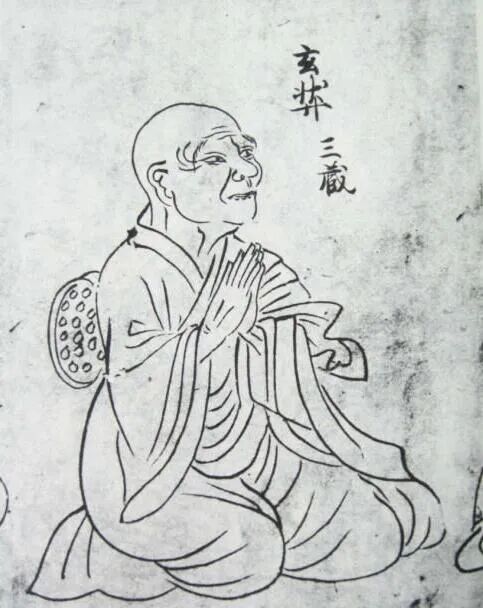 玄奘三蔵